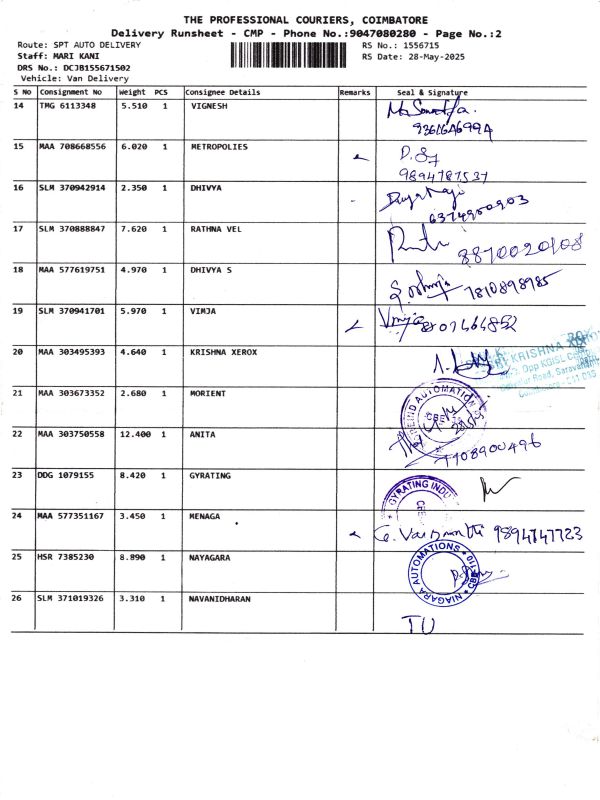 THE PROFESSIONAL COURIERS, COIMBATORE
Delivery Runsheet - CMP - Phone No.:9047080280 - Page No.:2
Route: SPT AUTO DELIVERY
Staff: MARI KANI
DRS No.: DCJB155671502
Vehicle: Van Delivery
RS No.: 1556715
RS Date: 28-May-2025
S No Consignment No Weight PCS Consignee Details Remarks Seal & Signature
14 TMG 6113348 5.510 1 VIGNESH
15 MAA 708668556 6.020 1 METROPOLIES
9894787537
16 SLM 370942914 2.350 1 DHIVYA
6374900903
17 SLM 370888847 7.620 1 RATHNA VEL
8870020108
18 MAA 577619751 4.970 1 DHIVYA S
7810898985
19 SLM 370941701 5.970 1 VIMJA
20 MAA 303495393 4.640 1 KRISHNA XEROX
KRISHNA
Opp KGISL
Road, Saravanam
21 MAA 303673352 2.680 1 MORIENT
AUTOMATION
CBE
22 MAA 303750558 12.400 1 ANITA
7708900496
23 DDG 1079155 8.420 1 GYRATING
GYRATING INDU
24 MAA 577351167 3.450 1 MENAGA
9894747723
25 HSR 7385230 8.890 1 NAYAGARA
NIAGARA AUTOMATIONS
26 SLM 371019326 3.310 1 NAVANIDHARAN
TU